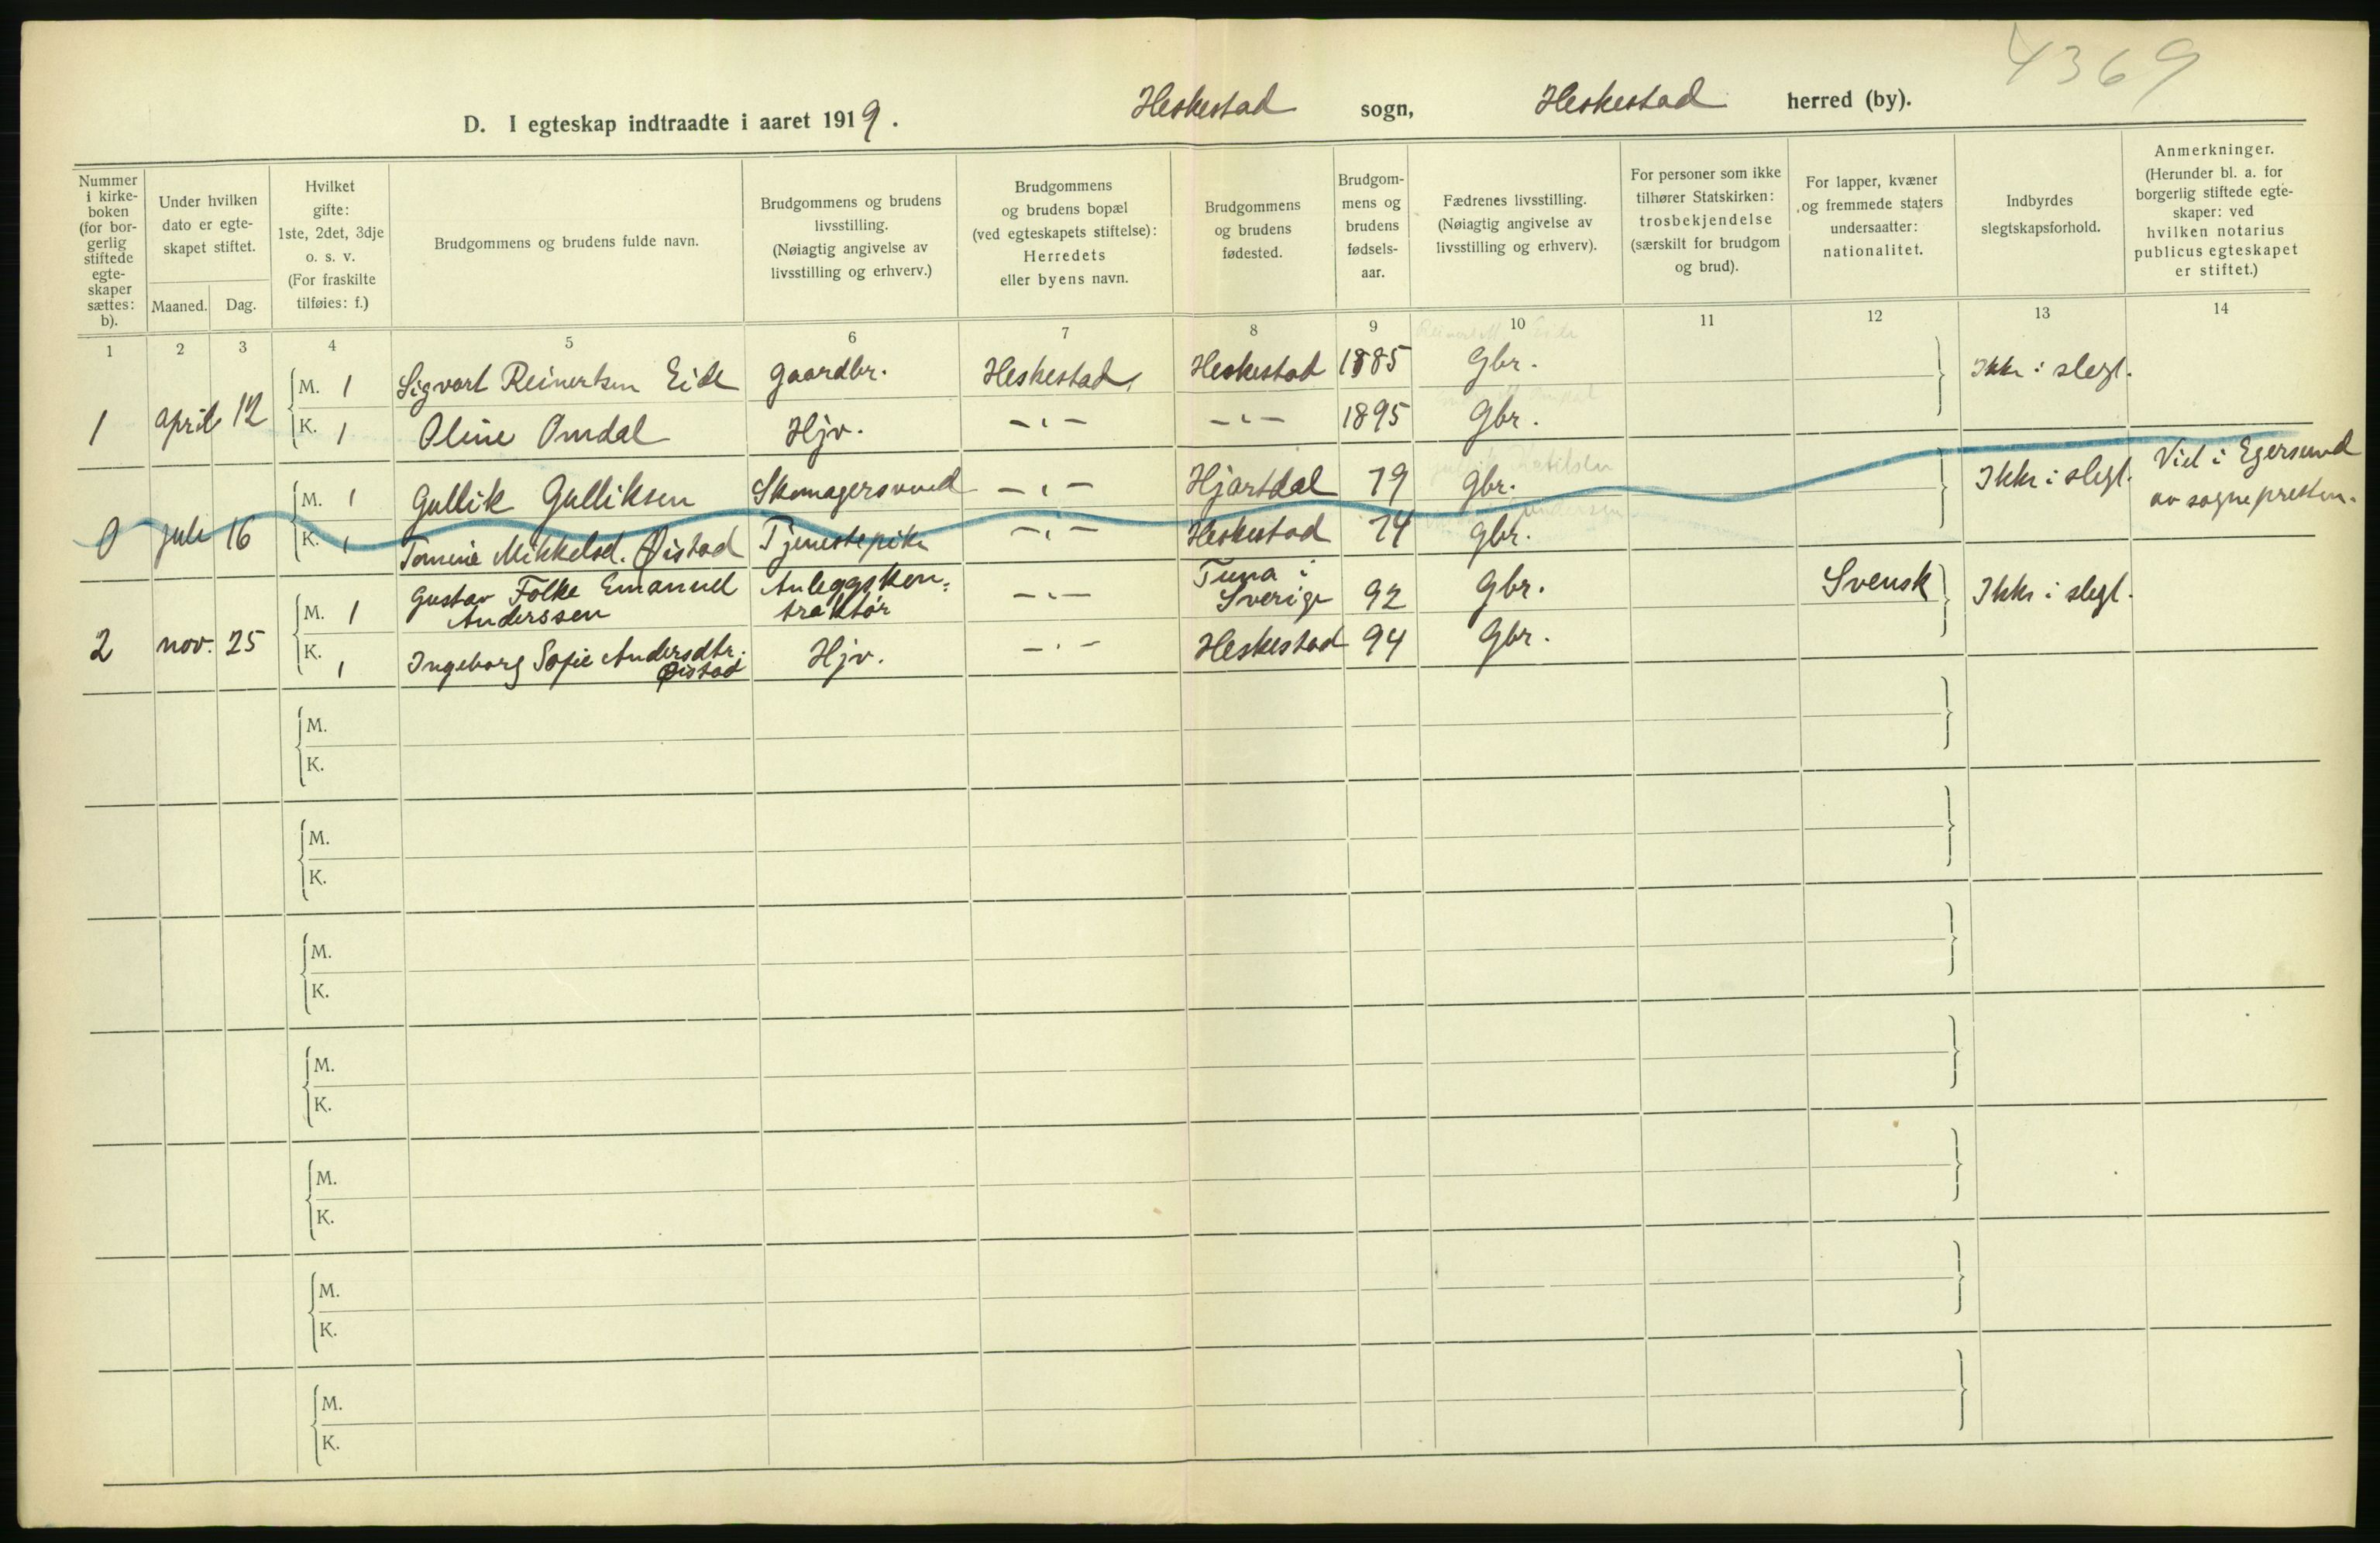 4369
D. I egteskap indtraadte i aaret 1919. Heskestad sogn, Heskestad herred (by).
Nummer i kirke-boken (for bor-gerlig stiftede egte-skaper sættes: b).
Under hvilken dato er egte-skapet stiftet.
Maaned. Dag.
Hvilket gifte: 1ste, 2det, 3dje o. s. v. (For fraskilte tilføies: f.)
Brudgommens og brudens fulde navn.
Brudgommens og brudens livsstilling. (Nøiagtig angivelse av livsstilling og erhverv.)
Brudgommens og brudens bopæl (ved egteskapets stiftelse): Herredets eller byens navn.
Brudgommens og brudens fødested.
Brudgom-mens og brudens fødsels-aar.
Fædrenes livsstilling. (Nøiagtig angivelse av livsstilling og erhverv).
For personer som ikke tilhører Statskirken: trosbekjendelse (særskilt for brudgom og brud).
For lapper, kvæner og fremmede staters undersaatter: nationalitet.
Indbyrdes slegtskapsforhold.
Anmerkninger. (Herunder bl. a. for borgerlig stiftede egte-skaper: ved hvilken notarius publicus egteskapet er stiftet.)
1 2 3 4 5 6 7 8 9 10 11 12 13 14
1 april 12 M. 1 Sigvart Reinertsen Eide gaardbr. Heskestad Heskestad 1885 Gbr. Ikke i slegt.
K. 1 Oline Omdal Hjv. -"- -"- 1895 Gbr.
0 juli 16 M. 1 Gullik Gulliksen Skomagersvend -"- Hjartdal 79 Gbr. Ikke i slegt. Viet i Egersund
av sognepresten.
K. 1 Tomine Mikkelsd. Øistad Tjenestepike -"- Heskestad 74 Gbr.
2 nov. 25 M. 1 Gustav Folke Emanuel Anderssen Anleggskon-traktør -"- Tuna i Sverige 92 Gbr. Svensk Ikke i slegt.
K. 1 Ingeborg Sofie Andersdtr. Øistad Hjv. -"- Heskestad 94 Gbr.
M.
K.
M.
K.
M.
K.
M.
K.
M.
K.
M.
K.
M.
K.